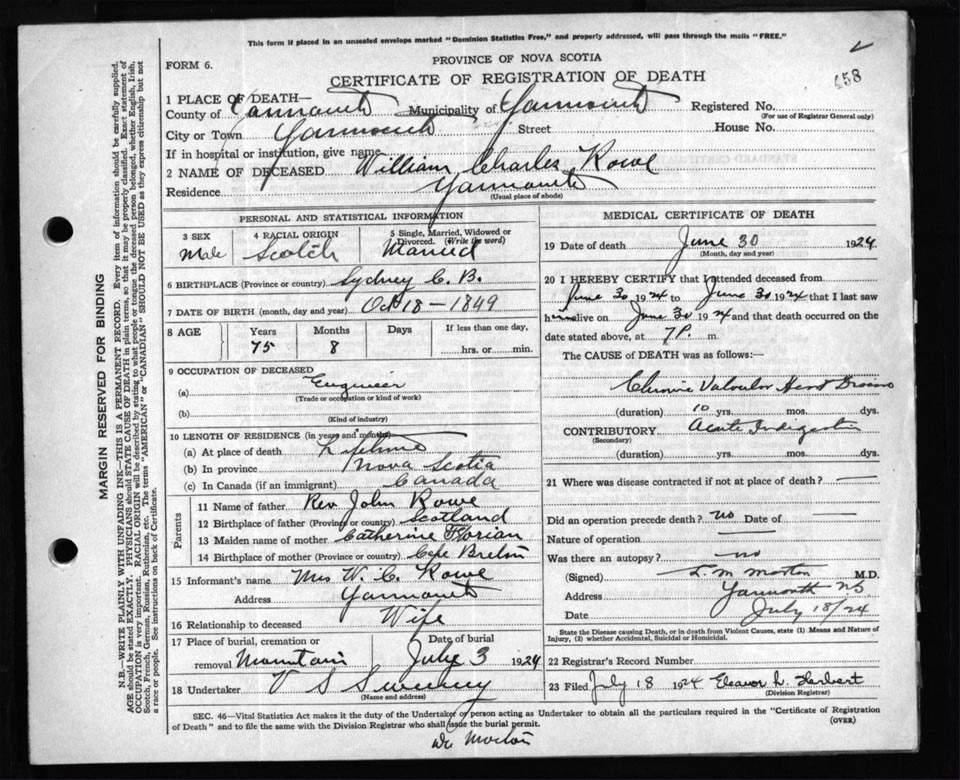 This form if placed in an unsealed envelope marked "Dominion Statistics Free," and properly addressed, will pass through the mails "FREE."
FORM 6.
PROVINCE OF NOVA SCOTIA
CERTIFICATE OF REGISTRATION OF DEATH
658
1 PLACE OF DEATH—
County of Yarmouth Municipality of Yarmouth Registered No.
(For use of Registrar General only)
City or Town Yarmouth Street House No.
If in hospital or institution, give name
2 NAME OF DECEASED William Charles Rowe
Residence Yarmouth
(Usual place of abode)
PERSONAL AND STATISTICAL INFORMATION
3 SEX 4 RACIAL ORIGIN 5 Single, Married, Widowed or Divorced. (Write the word)
Male Scotch Married
6 BIRTHPLACE (Province or country) Sydney C. B.
7 DATE OF BIRTH (month, day and year) Oct 18 — 1849
8 AGE Years Months Days If less than one day,
75 8 hrs. or min.
9 OCCUPATION OF DECEASED
(a) Engineer
(Trade or occupation or kind of work)
(b)
(Kind of industry)
10 LENGTH OF RESIDENCE (in years and months)
(a) At place of death Lifetime
(b) In province Nova Scotia
(c) In Canada (if an immigrant) Canada
Parents
11 Name of father Rev John Rowe
12 Birthplace of father (Province or country) Scotland
13 Maiden name of mother Catherine Florian
14 Birthplace of mother (Province or country) Cape Breton
15 Informant's name Mrs W. C. Rowe
Address Yarmouth
16 Relationship to deceased Wife
17 Place of burial, cremation or removal Mountain
Date of burial July 3 1924
18 Undertaker V S Sweeney
(Name and address)
MEDICAL CERTIFICATE OF DEATH
19 Date of death June 30 1924
(Month, day and year)
20 I HEREBY CERTIFY that I attended deceased from
June 30 1924 to June 30 1924 that I last saw
him alive on June 30 1924 and that death occurred on
date stated above, at 7 P. m.
The CAUSE OF DEATH was as follows:
Chronic Valvular Heart Disease
(duration) 10 yrs. mos. dys.
CONTRIBUTORY Acute Indigestion
(Secondary)
(duration) yrs. mos. dys.
21 Where was disease contracted if not at place of death? —
Did an operation precede death? no Date of —
Nature of operation —
Was there an autopsy? no
(Signed) Morton M.D.
Address Yarmouth N S
Date July 18/24
State the Disease causing Death, or in death from Violent Causes, state (1) Means and Nature of Injury, (2) whether Accidental, Suicidal or Homicidal.
22 Registrar's Record Number
23 Filed July 18 1924 Eleanor L. Herbert
(Division Registrar)
SEC. 46—Vital Statistics Act makes it the duty of the Undertaker or person acting as Undertaker to obtain all the particulars required in the "Certificate of Registration
of Death" and to file the same with the Division Registrar who shall issue the burial permit. (OVER)
Dr Morton
MARGIN RESERVED FOR BINDING
N.B.—WRITE PLAINLY WITH UNFADING INK—THIS IS A PERMANENT RECORD. Every item of information should be carefully supplied.
AGE should be stated EXACTLY. PHYSICIANS should STATE CAUSE OF DEATH in plain terms, so that it may be properly classified. Exact statement of
OCCUPATION is very important. RACIAL ORIGIN will be described by stating to what people or tongue the deceased person belonged, whether English, Irish,
Scotch, French, German, Russian, Ruthenian, etc. The terms "AMERICAN" or "CANADIAN" SHOULD NOT BE USED as they express citizenship but not
a race or people. See instructions on back of Certificate.